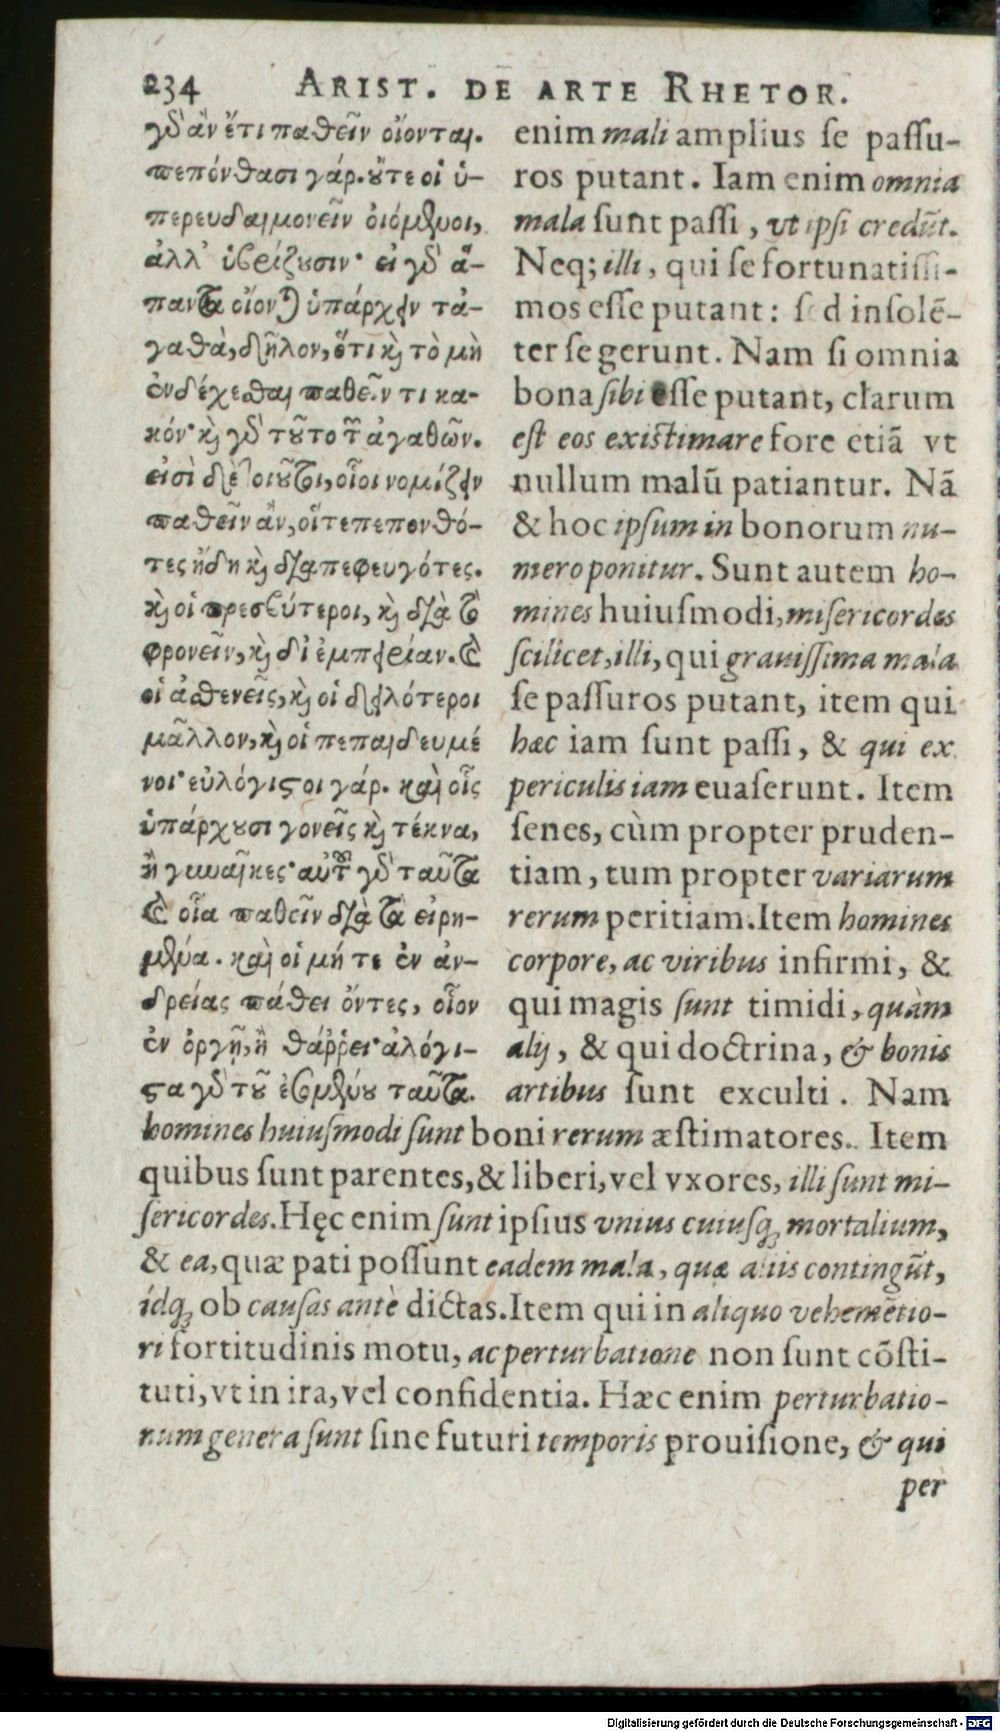 234 ARIST. DE ARTE RHETOR.
γδ ἂν ἔτι παθεῖν οἴονται.
πεπόνθασι γάρ. ȣ̓́τε οἱ ὑ-
περευδαιμονεῖν οἰόμϟμοι,
ἀλλ' ὑβρίζȣσιν· εἰ γδ ἅ-
παντα οἴονται ὑπάρχειν τά-
γαθὰ, δῆλον, ὅτι κ̀ τὸ μὴ
ἐνδέχεσθαι παθεῖν τι κα-
κόν· κ̀ γδ τȣ͂το τῶν ἀγαθῶν.
εἰσὶ δὲ τοιȣ͂τοι, οἷοι νομίζειν
παθεῖν ἂν, οἵ τε πεπονθό-
τες ἤδη κ̀ διαπεφευγότες.
κ̀ οἱ πρεσβύτεροι, κ̀ διὰ τὸ
φρονεῖν, κ̀ δι' ἐμπειρίαν. καὶ
οἱ ἀσθενεῖς, κ̀ οἱ δειλότεροι
μᾶλλον, κ̀ οἱ πεπαιδευμέ
νοι· εὐλόγιςοι γάρ. καὶ οἷς
ὑπάρχȣσι γονεῖς κ̀ τέκνα,
ἢ γυναῖκες· αὐτῶν γδ ταῦτα
καὶ οἷα παθεῖν διὰ τὰ εἰρη-
μένα. καὶ οἱ μήτε ἐν ἀν-
δρείας πάθει ὄντες, οἷον
ἐν ὀργῇ, ἢ θάῤῥει· ἀλόγι-
ςα γδ τȣ͂ ἐσομένȣ ταῦτα.
enim mali amplius se passu-
ros putant. Iam enim omnia
mala sunt passi, vt ipsi credūt.
Neq; illi, qui se fortunatissi-
mos esse putant: sed insolē-
ter se gerunt. Nam si omnia
bona sibi esse putant, clarum
est eos existimare fore etiā vt
nullum malū patiantur. Nā
& hoc ipsum in bonorum nu-
mero ponitur. Sunt autem ho-
mines huiusmodi, misericordes
scilicet, illi, qui grauissima mala
se passuros putant, item qui
hæc iam sunt passi, & qui ex
periculis iam euaserunt. Item
senes, cùm propter pruden-
tiam, tum propter variarum
rerum peritiam. Item homines
corpore, ac viribus infirmi, &
qui magis sunt timidi, quàm
alij, & qui doctrina, & bonis
artibus sunt exculti. Nam
homines huiusmodi sunt boni rerum æstimatores. Item
quibus sunt parentes, & liberi, vel vxores, illi sunt mi-
sericordes. Hęc enim sunt ipsius vnius cuiusq; mortalium,
& ea, quæ pati possunt eadem mala, quæ aliis contingūt,
idq; ob causas antè dictas. Item qui in aliquo vehemētio-
ri fortitudinis motu, ac perturbatione non sunt cōsti-
tuti, vt in ira, vel confidentia. Hæc enim perturbatio-
num genera sunt sine futuri temporis prouisione, & qui
per
Digitalisierung gefördert durch die Deutsche Forschungsgemeinschaft - DFG